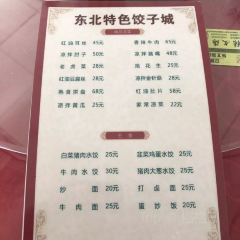 东北特色饺子城
红油耳丝 45元 香辣牛肉 65元
凉拌肚子 50元 凉拌猪嘴 48元
老虎菜 28元 炸花生 25元
红油豆腐丝 28元 凉拌金针菇 28元
熟食拼盘 68元 红油肚片 58元
凉拌黄瓜 25元 家常凉菜 22元
主食
白菜猪肉水饺 25元 韭菜鸡蛋水饺 25元
牛肉水饺 30元 猪肉大葱水饺 25元
炒面 20元 打卤面 20元
牛肉面 20元 蛋炒饭 20元